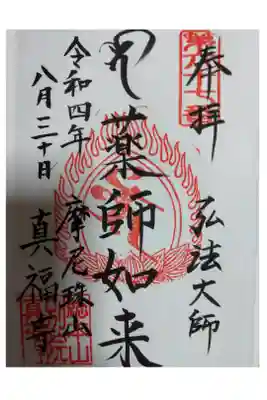 奉拝
弘法大師
薬師如来
摩尼珠山
真福寺
令和四年
八月三十日